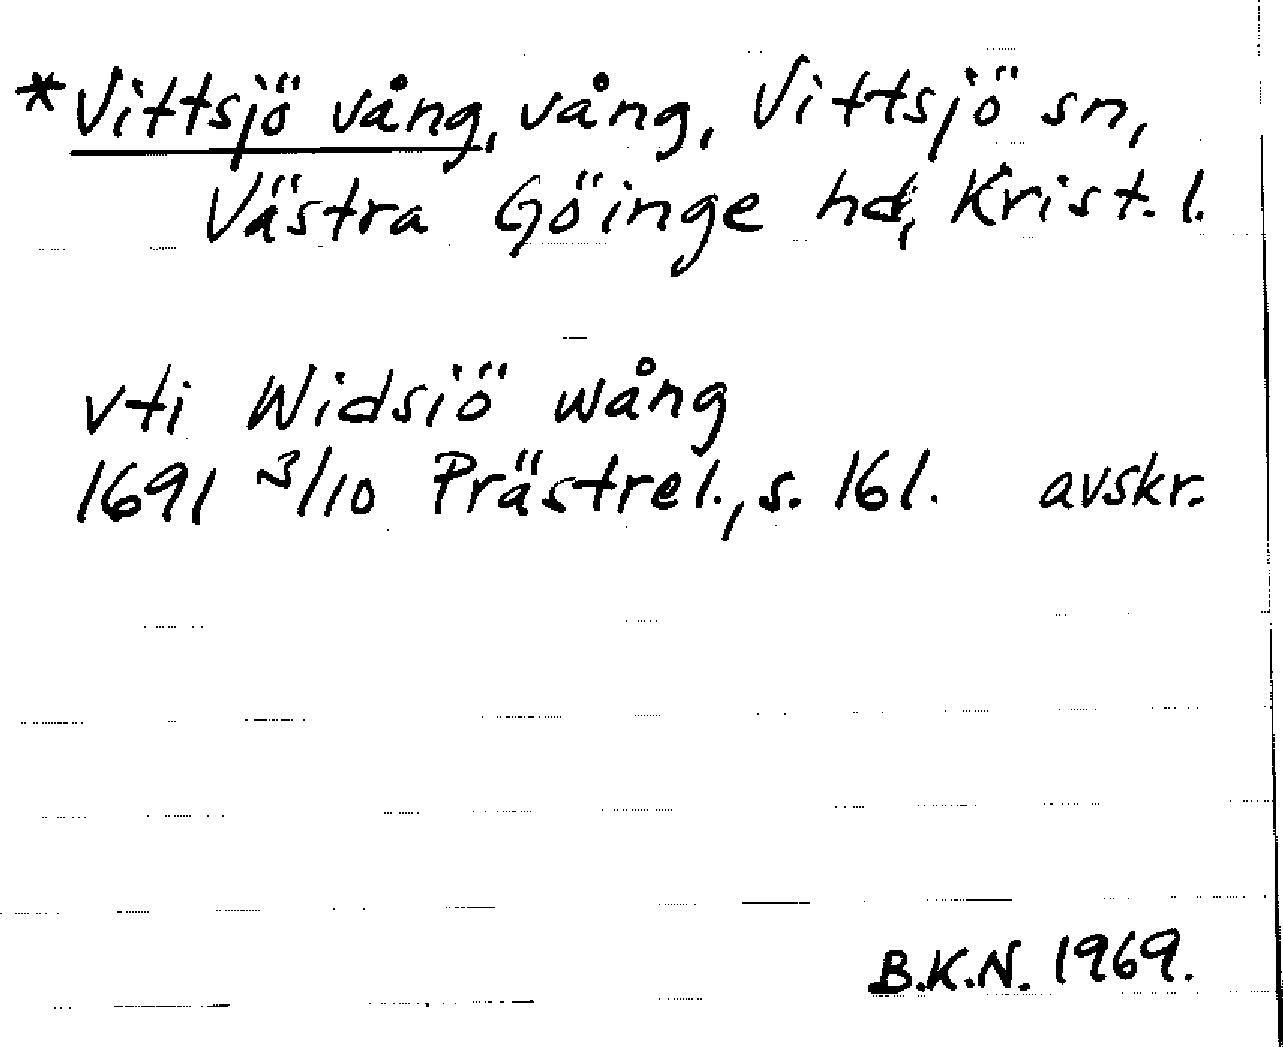 *Vittsjö vång, vång, Vittsjö sn,
Västra Göinge hd, Krist. l.
vti Widsiö wång
1691 3/10 Prästrel., s. 161. avskr.
B.K.N. 1969.